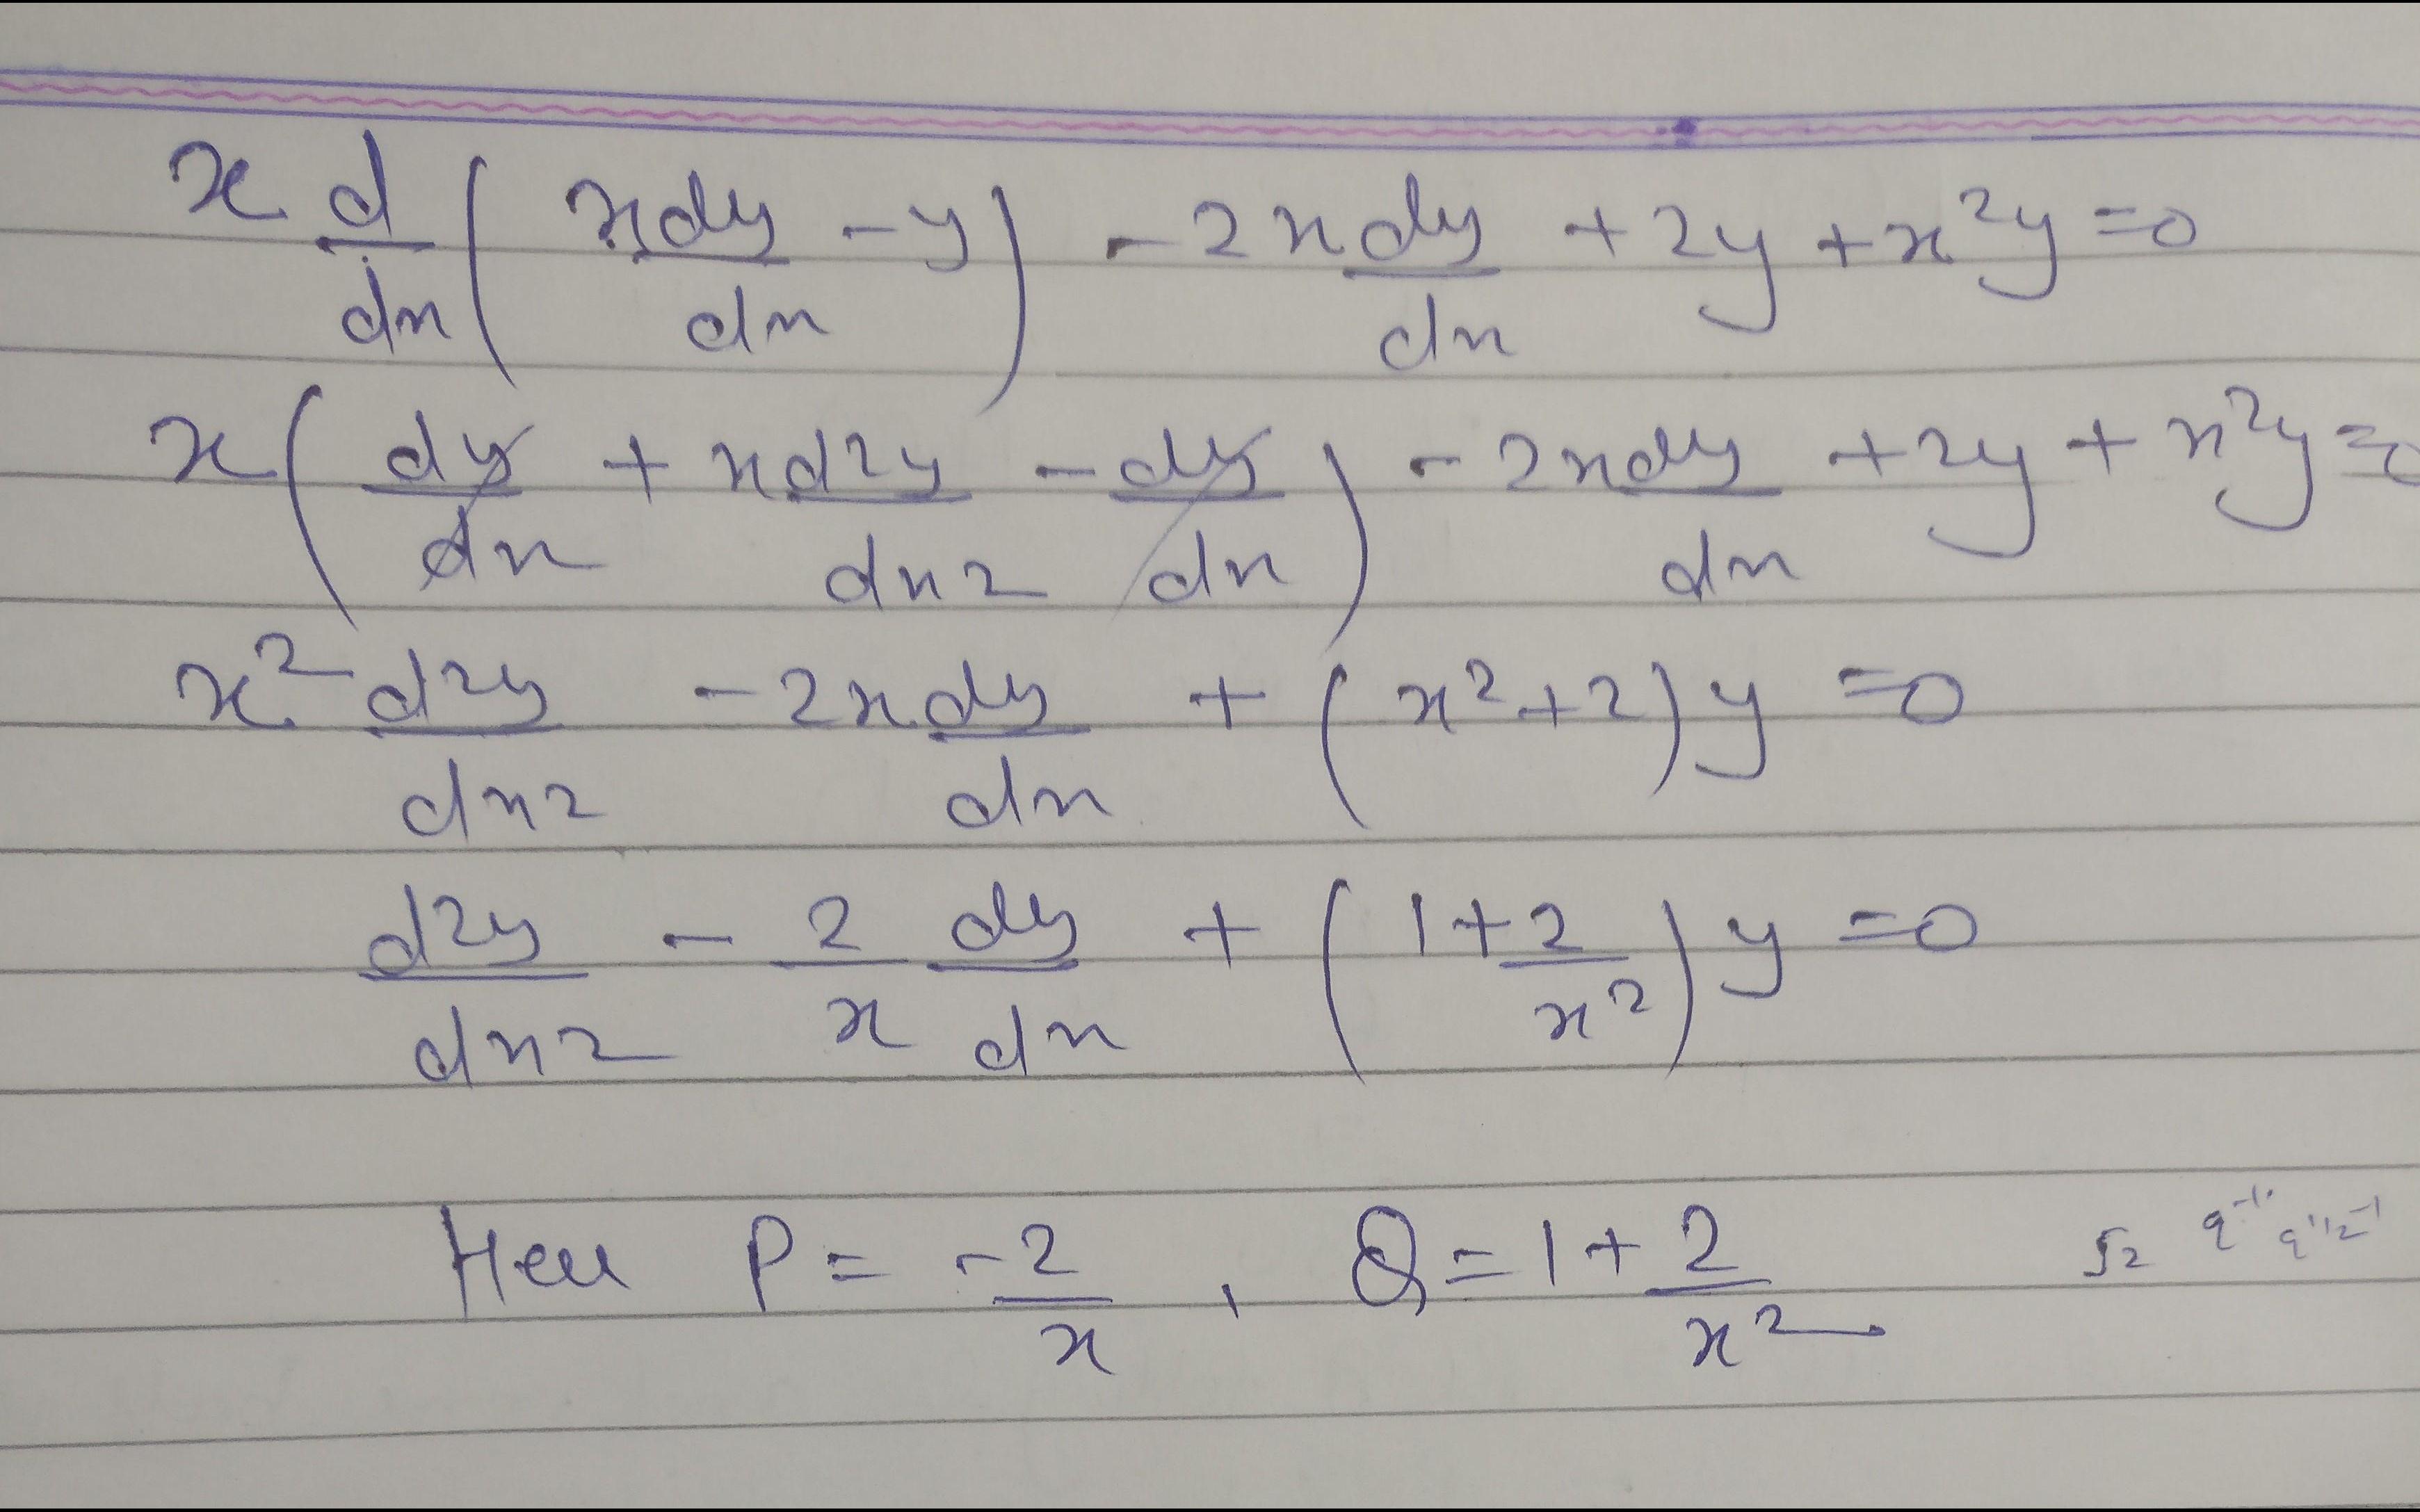 x d/dx ( x dy/dx - y ) - 2x dy/dx + 2y + x²y = 0
x ( dy/dx + x d²y/dx² - dy/dx ) - 2x dy/dx + 2y + x²y = 0
x² d²y/dx² - 2x dy/dx + (x² + 2) y = 0
d²y/dx² - 2/x dy/dx + ( 1 + 2/x² ) y = 0
Here P = -2/x , Q = 1 + 2/x²